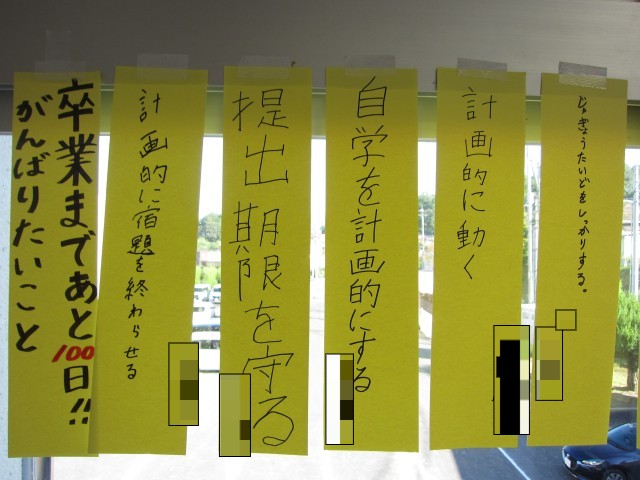 卒業まであと100日!!
がんばりたいこと
計画的に宿題を終わらせる
提出期限を守る
自学を計画的にする
計画的に動く
じゅぎょうたいどをしっかりする。